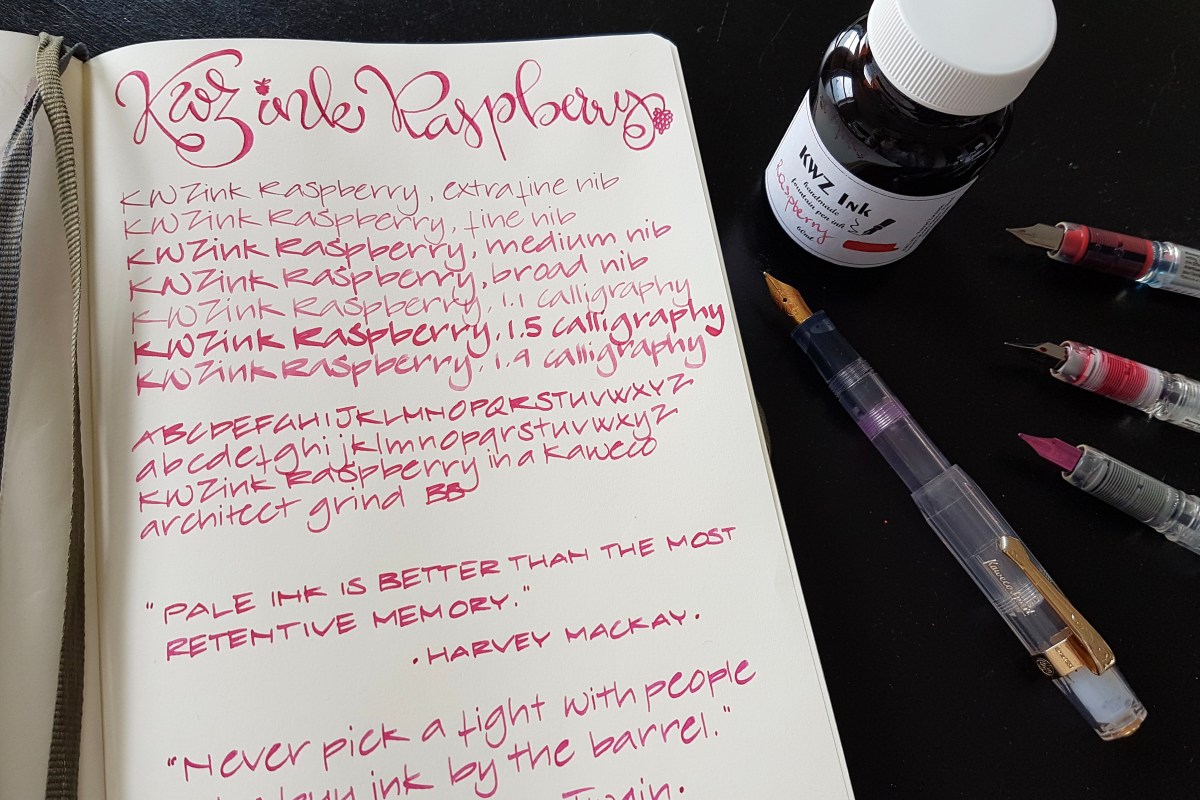 KWZ ink Raspberry
KWZink Raspberry, extra fine nib
KWZink Raspberry, fine nib
KWZink Raspberry, medium nib
KWZink Raspberry, broad nib
KWZink Raspberry, 1.1 calligraphy
KWZink Raspberry, 1.5 calligraphy
KWZink Raspberry, 1.9 calligraphy
ABCDEFGHIJKLMNOPQRSTUVWXYZ
abcdefghijklmnopqrstuvwxyz
KWZink Raspberry in a Kaweco
architect grind BB
"PALE INK IS BETTER THAN THE MOST
RETENTIVE MEMORY."
·HARVEY MACKAY.
"Never pick a fight with people
buy ink by the barrel."
Twain.
KWZ Ink
handmade
fountain pen ink
Raspberry
60ml